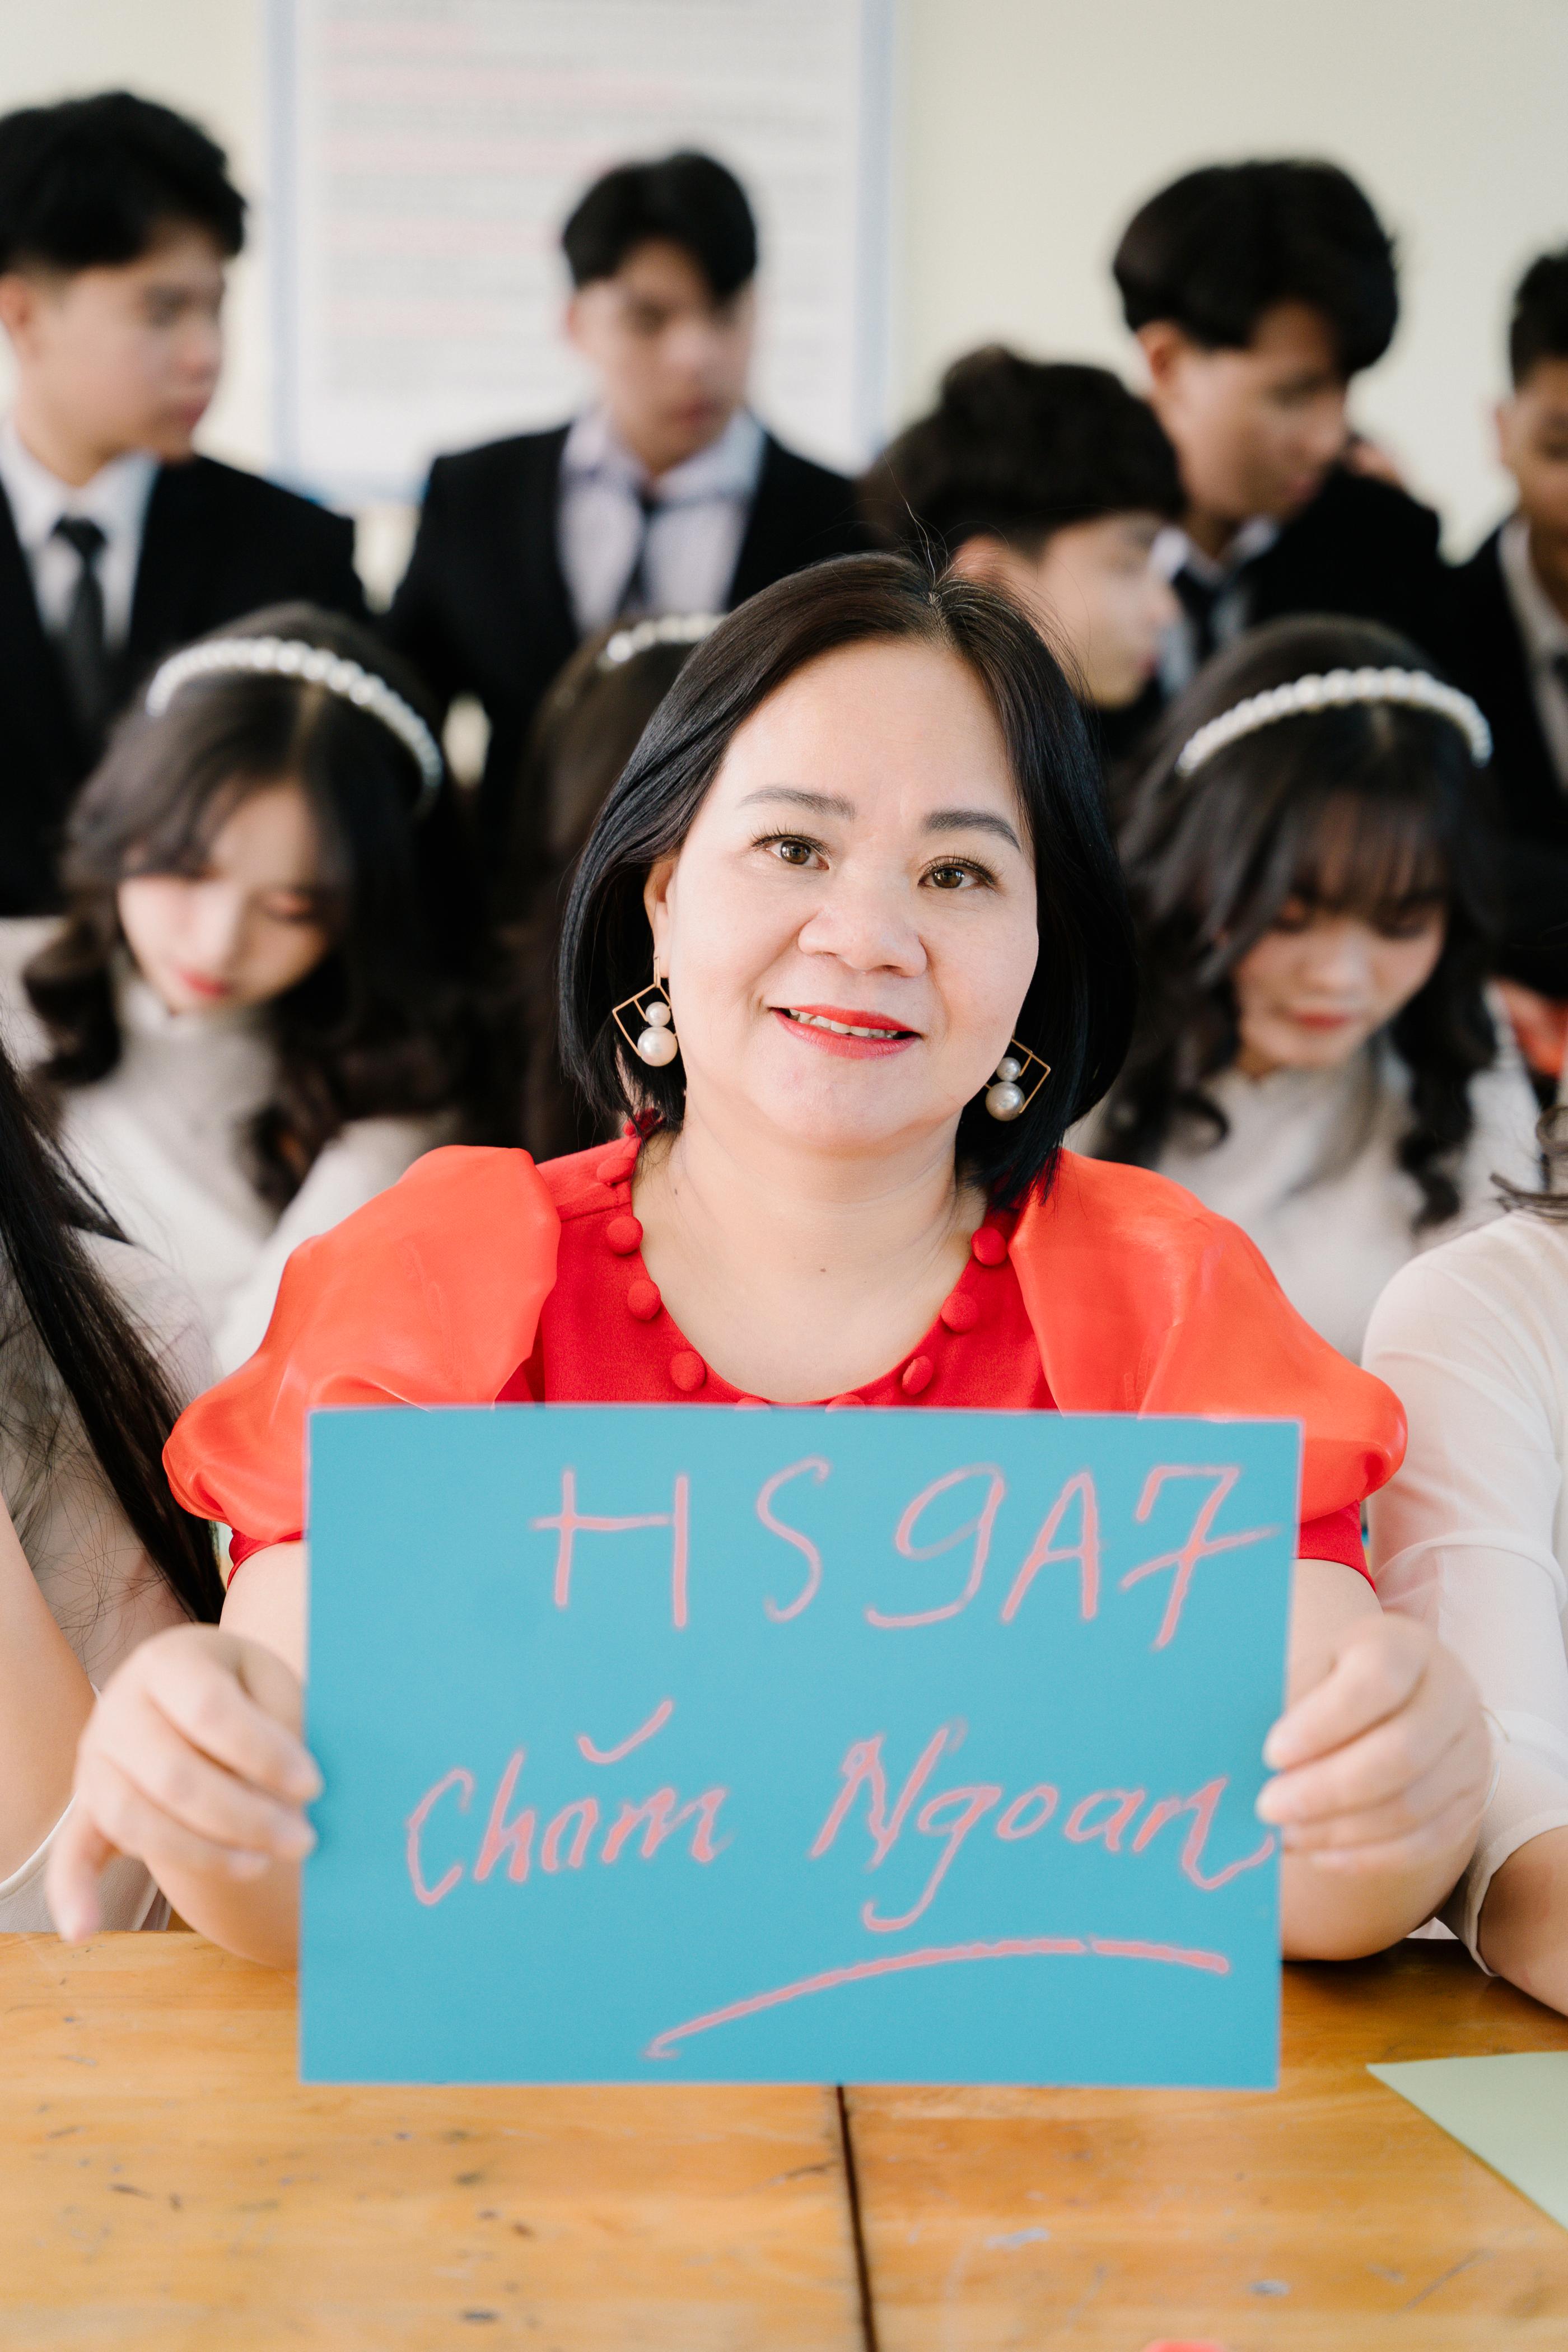 HS 9A7
Chăm Ngoan